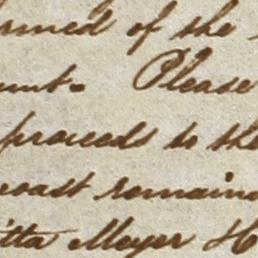 rmed of the
unt. Please
proceeds to the
coast remains
itta Meyer H